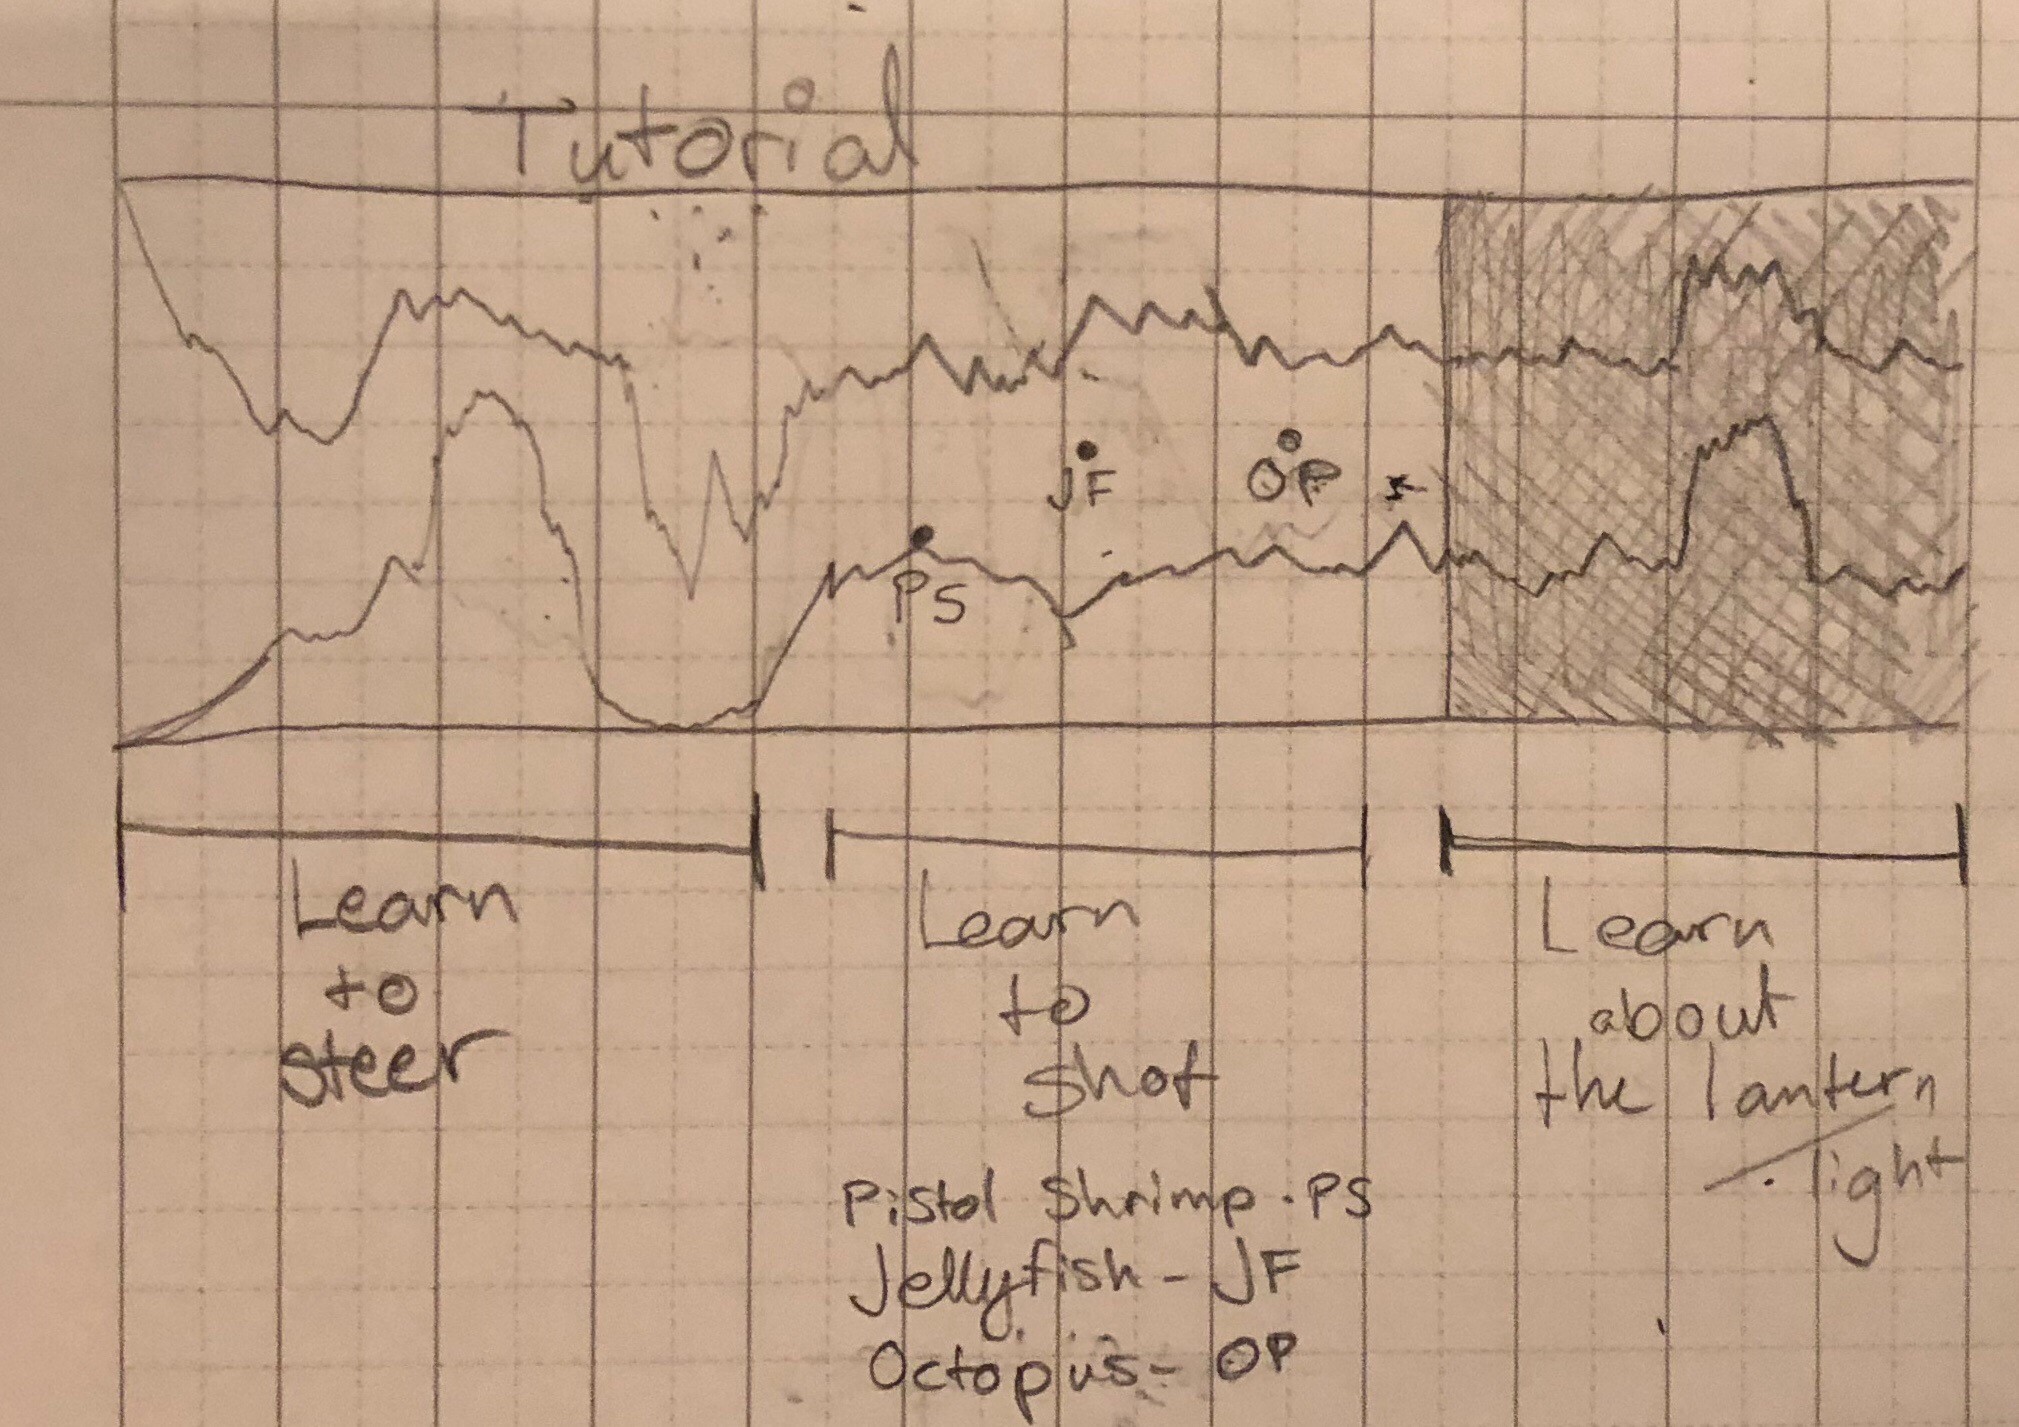 Tutorial
JF
OP
PS
Learn
to
steer
Learn
to
shot
Learn
about
the lantern
light
Pistol Shrimp - PS
Jellyfish - JF
Octopus - OP